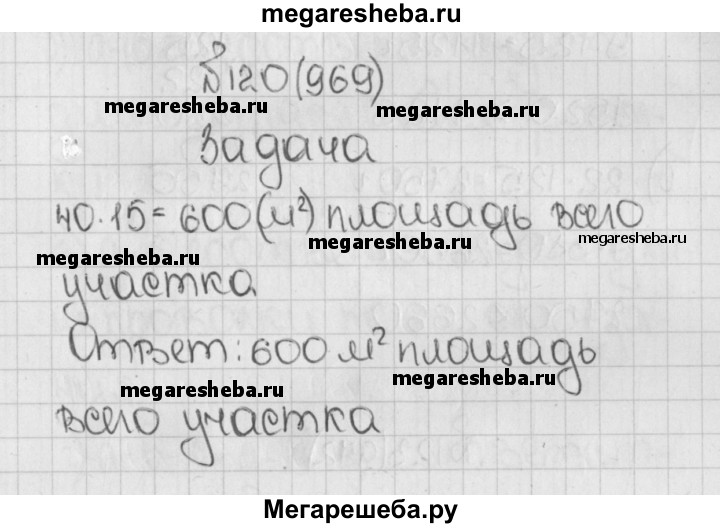 megaresheba.ru
№120(969)
megaresheba.ru
megaresheba.ru
Задача
40·15=600(м²) площадь всего
megaresheba.ru
megaresheba.ru
megaresheba.ru
участка
Ответ: 600 м² площадь
megaresheba.ru
megaresheba.ru
всего участка
Мегарешеба.ру